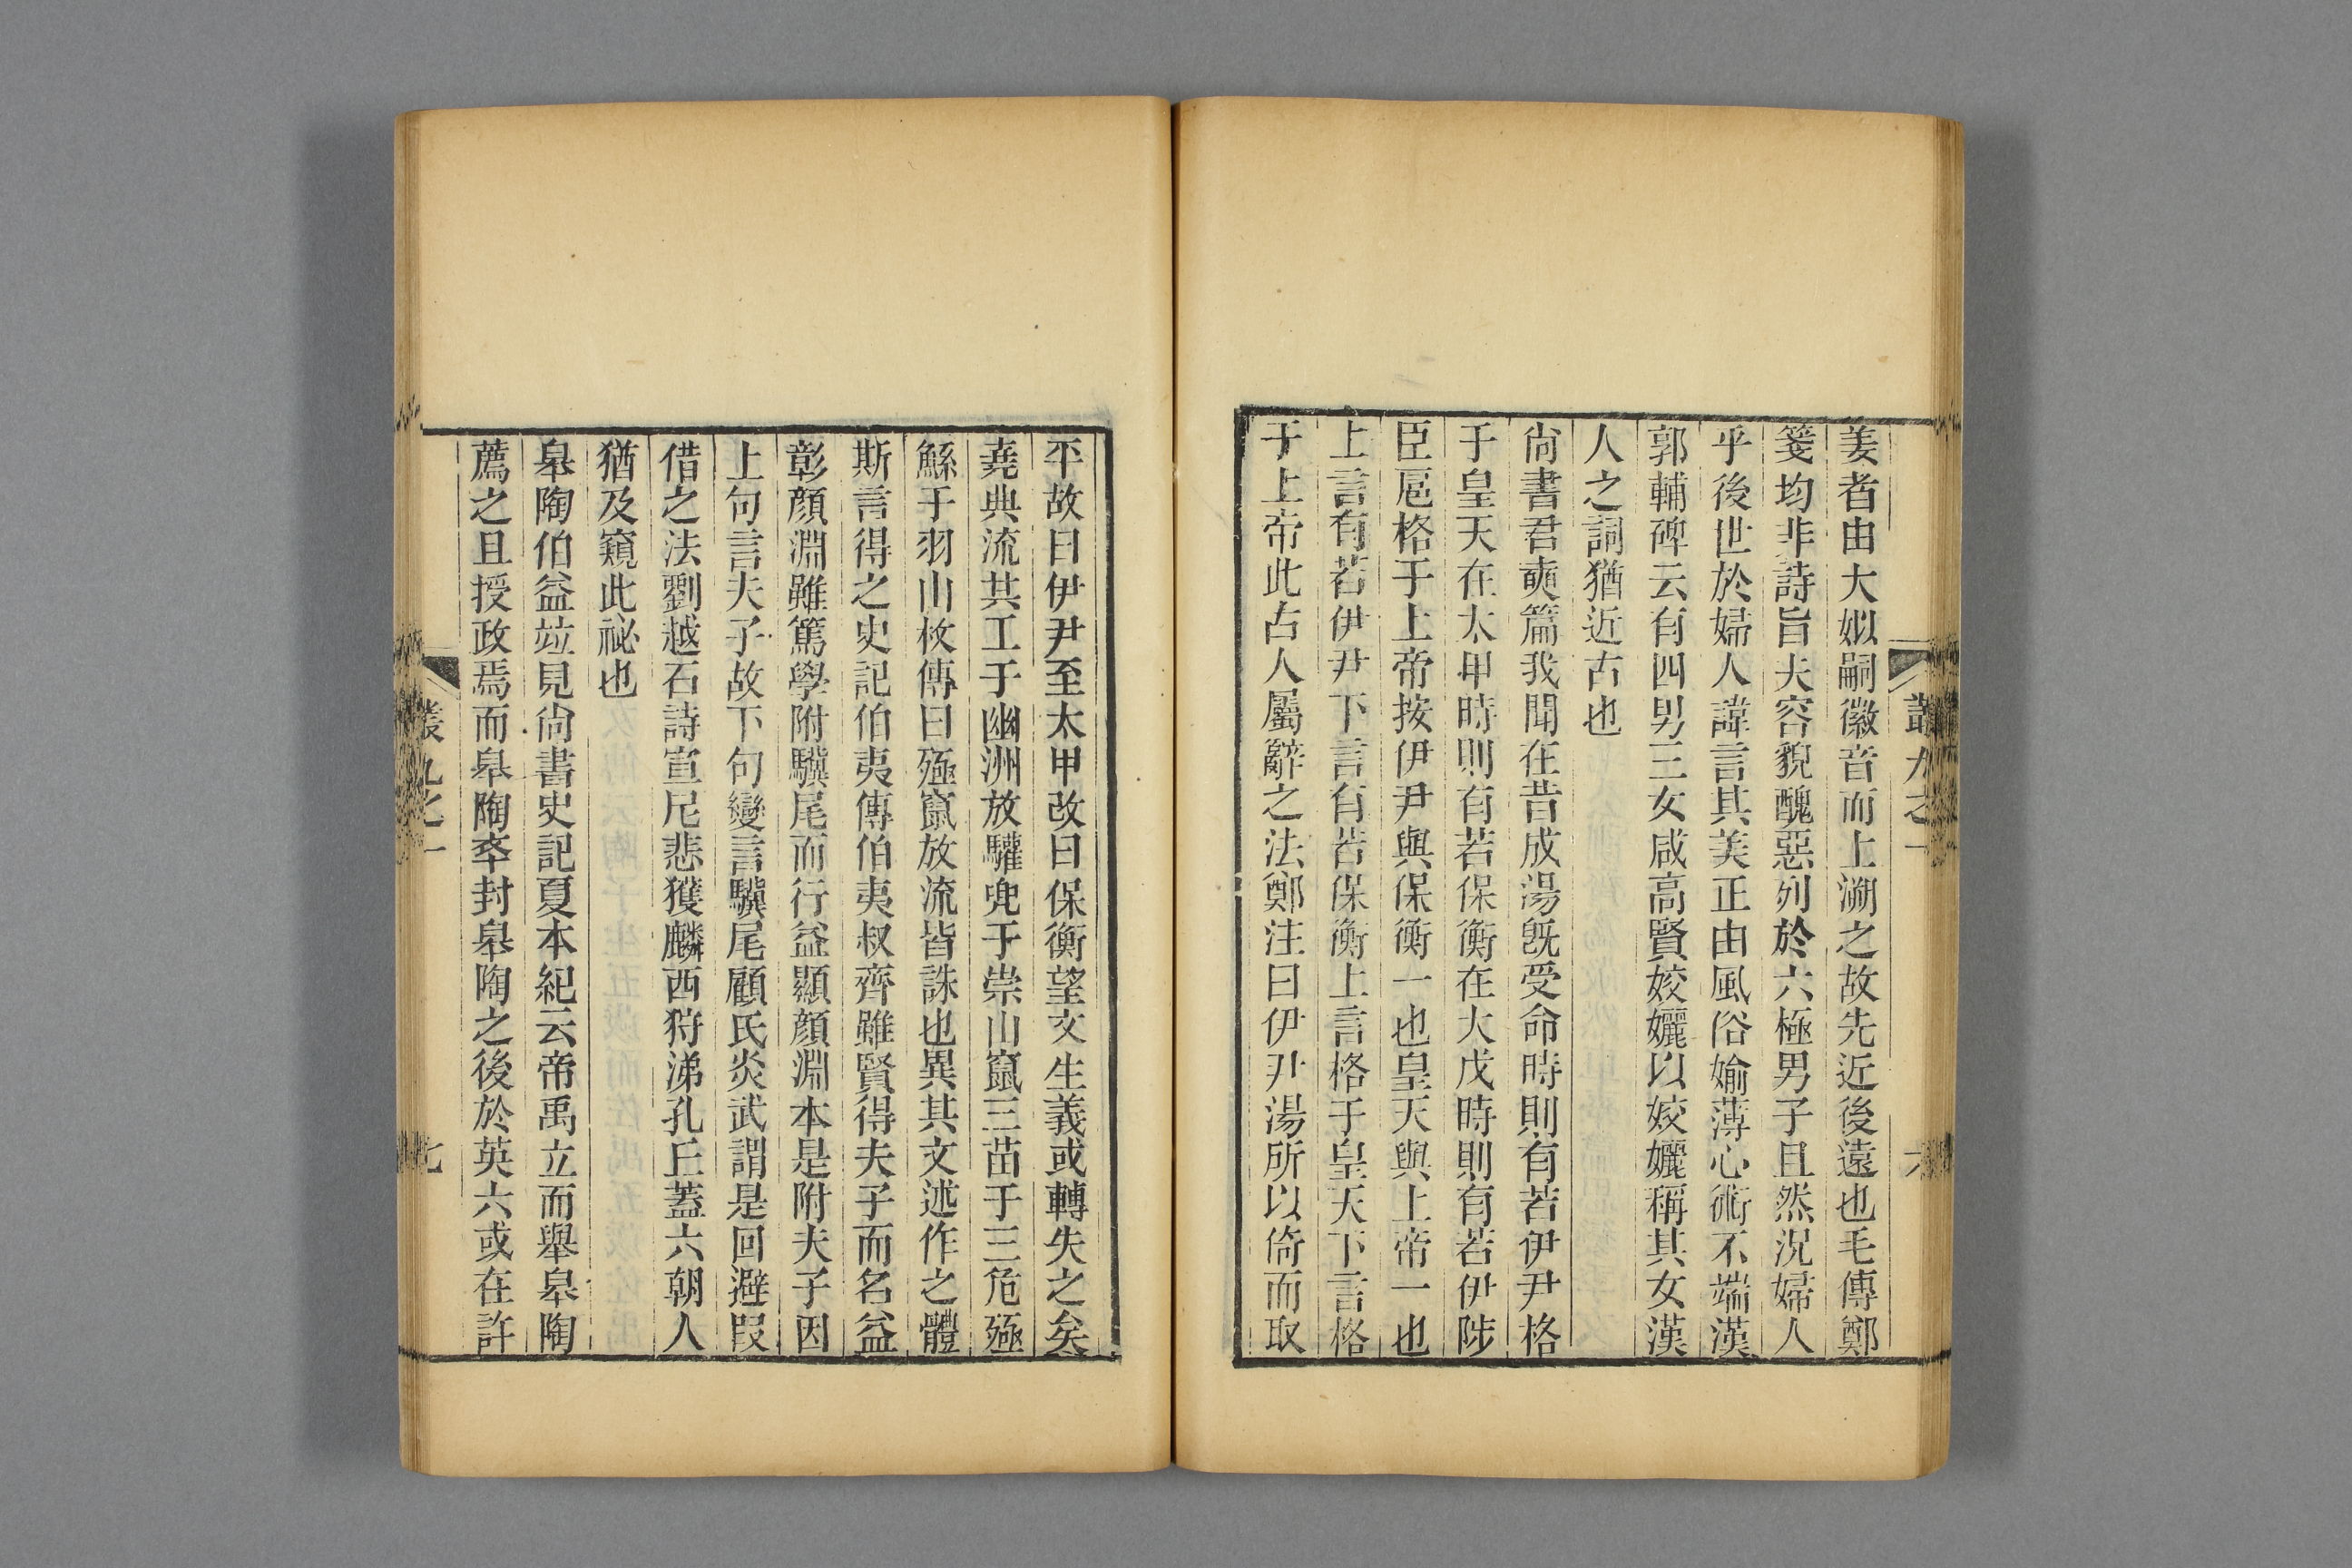 姜者由大姒嗣徽音而上溯之故先近後遠也毛傳鄭
箋均非詩旨夫容貌醜惡列於六極男子且然況婦人
乎後世於婦人諱言其美正由風俗媮薄心術不端漢
郭輔碑云有四男三女咸高賢姣孋以姣孋稱其女漢
人之詞猶近古也
尙書君奭篇我聞在昔成湯旣受命時則有若伊尹格
于皇天在太甲時則有若保衡在大戊時則有若伊陟
臣扈格于上帝按伊尹與保衡一也皇天與上帝一也
上言有若伊尹下言有若保衡上言格于皇天下言格
于上帝此古人屬辭之法鄭注曰伊尹湯所以倚而取
叢九之一
六
平故曰伊尹至太甲改曰保衡望文生義或轉失之矣
堯典流共工于幽洲放驩兜于崇山竄三苗于三危殛
鯀于羽山枚傳曰殛竄放流皆誅也異其文述作之體
斯言得之史記伯夷傳伯夷叔齊雖賢得夫子而名益
彰顏淵雖篤學附驥尾而行益顯顏淵本是附夫子因
上句言夫子故下句變言驥尾顧氏炎武謂是回避叚
借之法劉越石詩宣尼悲獲麟西狩涕孔丘蓋六朝人
猶及窺此祕也
皋陶伯益竝見尙書史記夏本紀云帝禹立而舉皋陶
薦之且授政焉而皋陶卒封皋陶之後於英六或在許
叢九之一
七